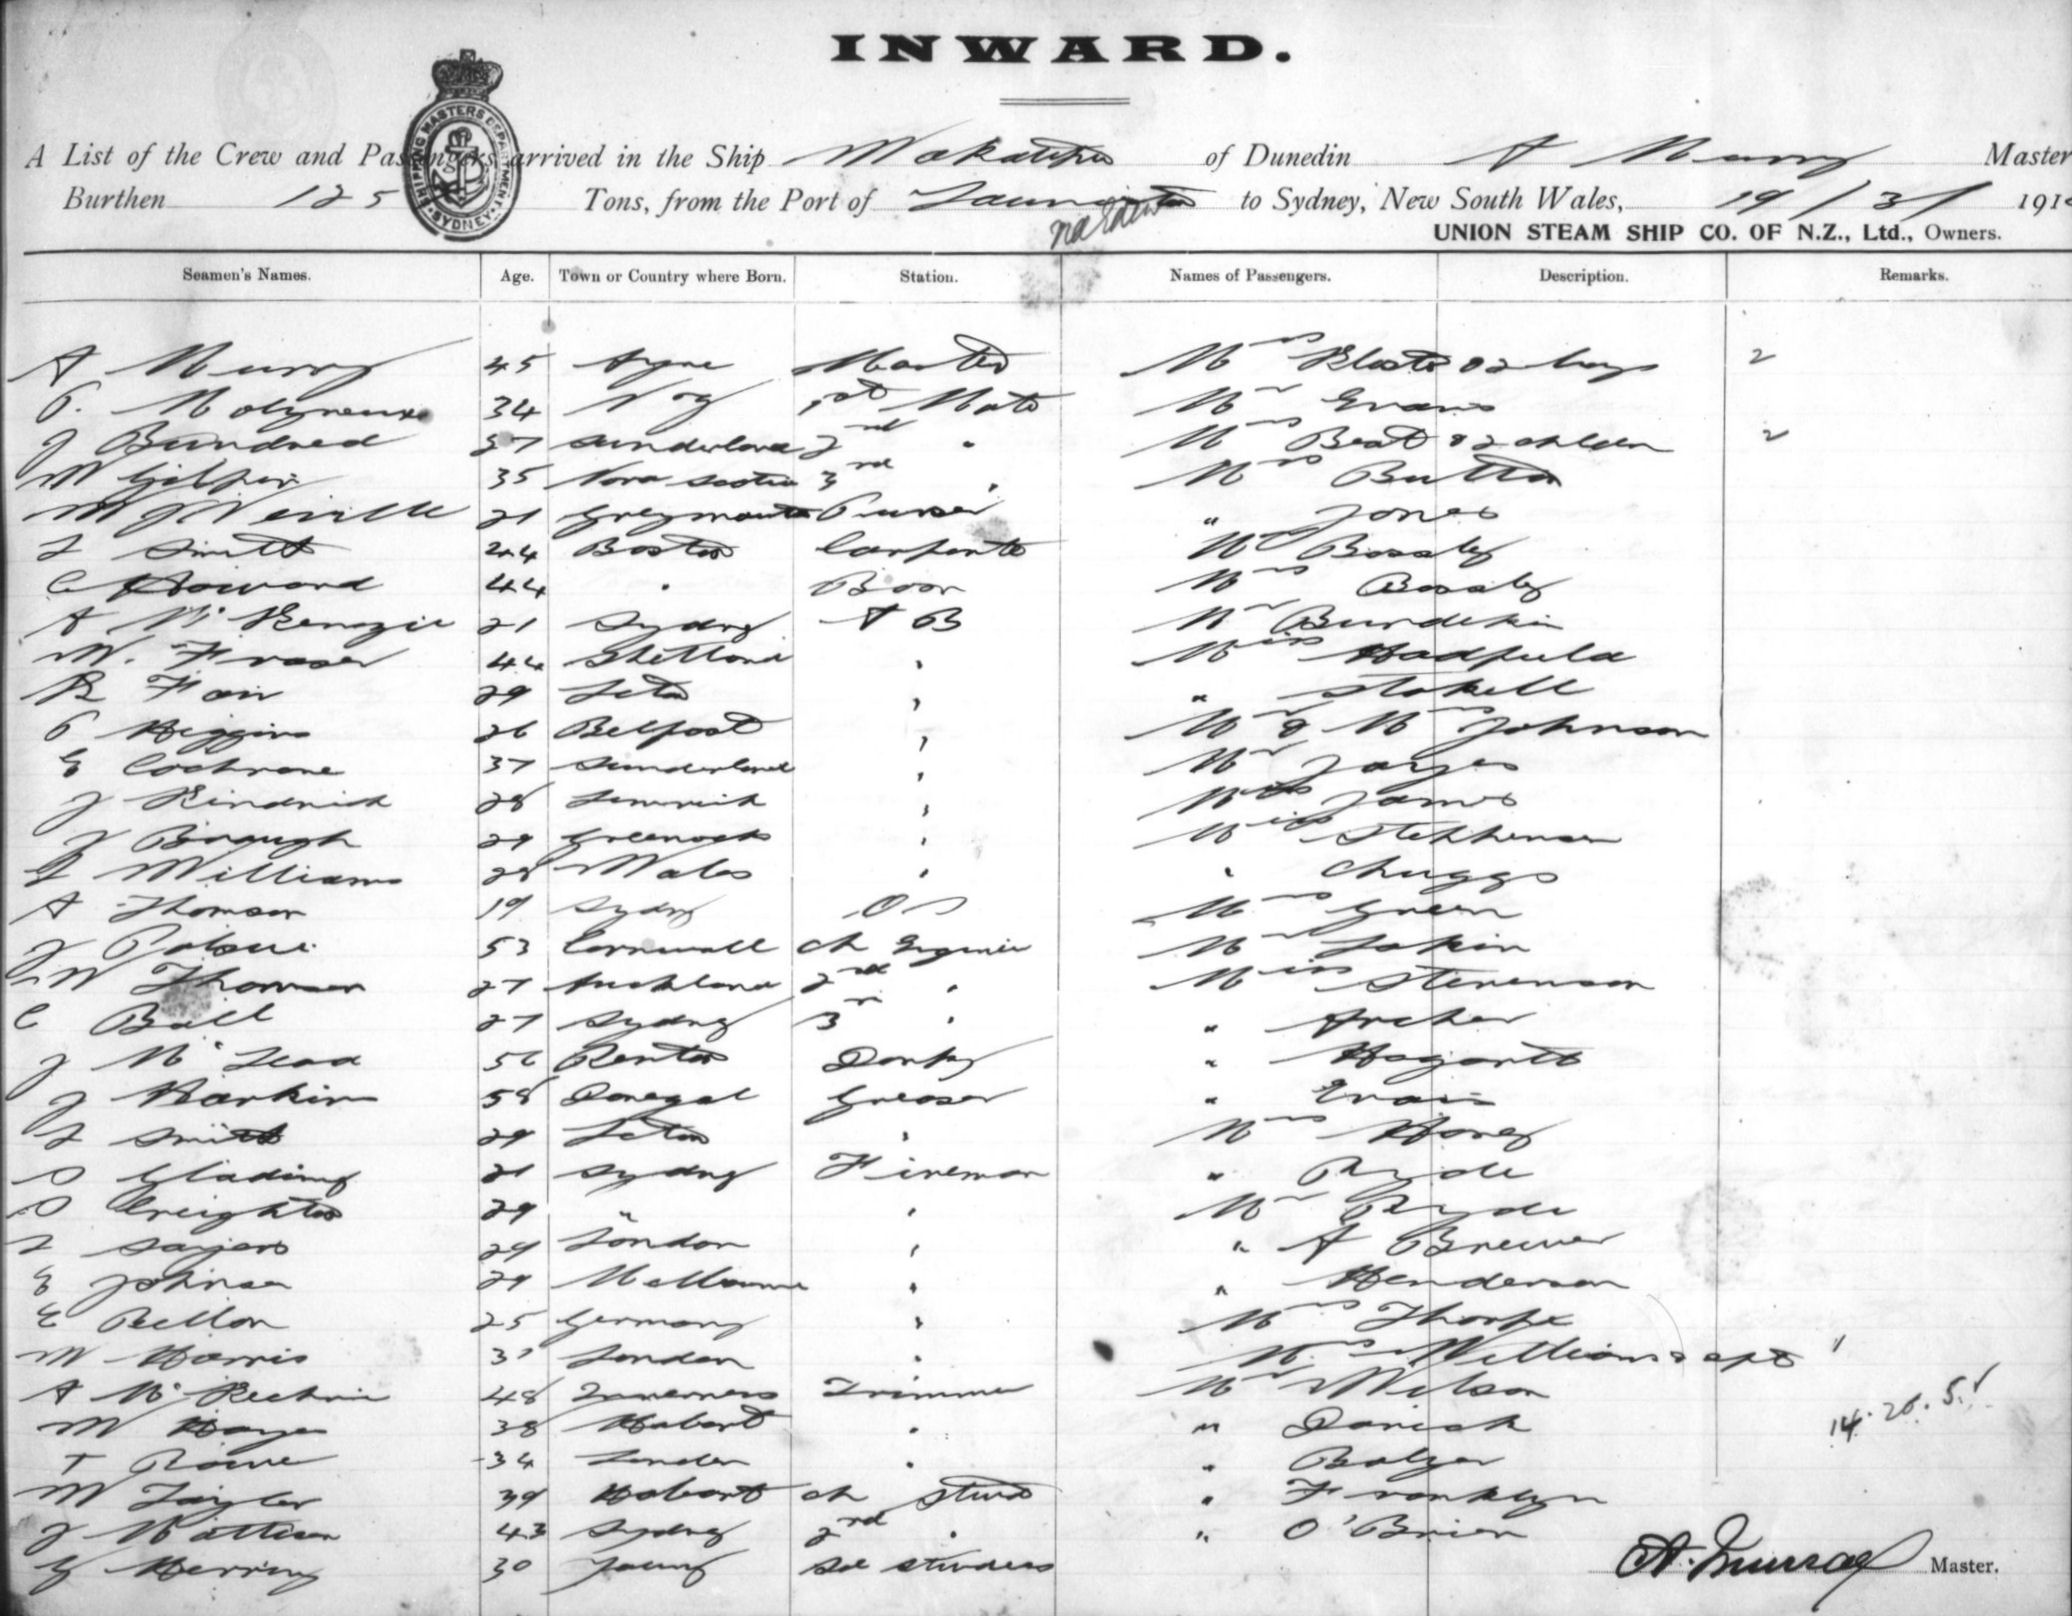 INWARD.
SHIPPING MASTERS DEPARTMENT. SYDNEY
A List of the Crew and Passengers arrived in the Ship Wakatipu of Dunedin A Murray Master
Burthen 125 Tons, from the Port of Launceston to Sydney, New South Wales, 19/3/ 191
UNION STEAM SHIP CO. OF N.Z., Ltd., Owners.
Seamen's Names. Age. Town or Country where Born. Station. Names of Passengers. Description. Remarks.
A Murray 45 Master Mrs & 2 boys 2
P. Molyneux 34 1st Mate Mr Evans
J Bundred 37 Sunderland 2nd " Mrs Beat & 2 children 2
W Gilpin 35 Nova Scotia 3rd " Mrs Button
W J Neville 21 Greymouth Purser " Jones
J Smith 24 Boston Carpenter Mr Bossley
C Howard 44 " Bosn Mrs Bossley
A McKenzie 21 Sydney A B Mr Burdekin
W. Fraser 44 Shetland " Miss Hadfield
R Fair 29 " " Stokell
P Higgins 26 Belfast " Mr & Mrs Johnson
E Cochrane 37 Sunderland " Mr
J Kindrick 28 Limerick " Mrs James
J Borough 29 Greenock " Miss Stephenson
J Williams 28 Wales " " Chuggs
A Thomson 19 Sydney O S Mrs Green
J 53 Cornwall Ch Engineer Mr Lakin
W Thomson 27 Auckland 2nd " Miss Stevenson
C Ball 27 Sydney 3rd " " Archer
J McLeod 56 Donkey " Hogarth
J Harkin 58 Donegal Greaser " Evans
J Smith 29 " Mrs Honey
S Glading 21 Sydney Fireman " Ryde
S Creighton 29 " " Mr Ryde
J Sayers 29 London " " A Brewer
E Johnson 29 Melbourne " " Henderson
E Bellon 25 Germany " Mrs Thorpe
W Harris 31 London " Mrs Williams "
A McKechnie 48 Inverness Trimmer Mr Wilson
W Hayes 38 Hobart " " Danich 14. 26. 5.
T Rowe 34 London " " Balzer
W Taylor 39 Hobart Ch Stwd " Franklyn
J Mattison 43 Sydney 2nd " " O'Brien
G Herring 30 Young Sal Stwdess
A. Murray Master.